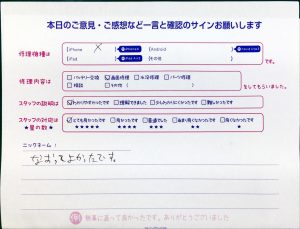 本日のご意見・ご感想など一言と確認のサインお願いします
修理機種は
iPhone X
Android
iPad
その他
です。
修理内容は
バッテリー交換 画面修理 水没修理 パーツ修理
相談 その他
をしてもらいました。
スタッフの説明は
わかりやすかったです 理解できました 少しわかりにくかったです 難しかったです
スタッフの対応は
★星の数★
とても良かったです 良かったです 普通でした あまり良くなかったです 良くなかったです
★★★★★ ★★★★ ★★★ ★★ ★
ニックネーム：
なおってよかったです。
無事に直って良かったです。ありがとうございました